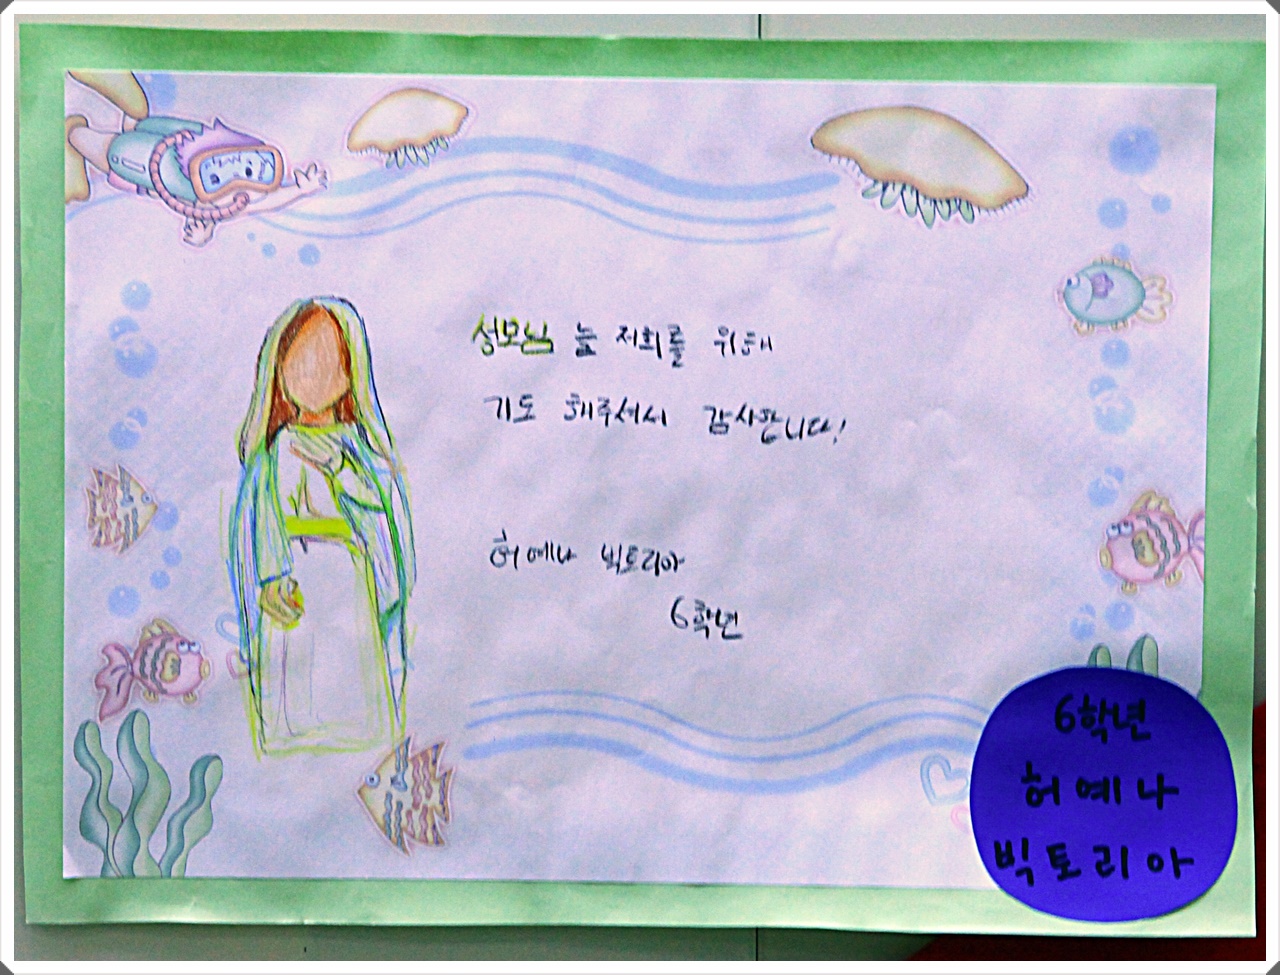 성모님 늘 저희를 위해
기도 해주셔서 감사합니다!
허예나 빅토리아
6학년
6학년
허예나
빅토리아